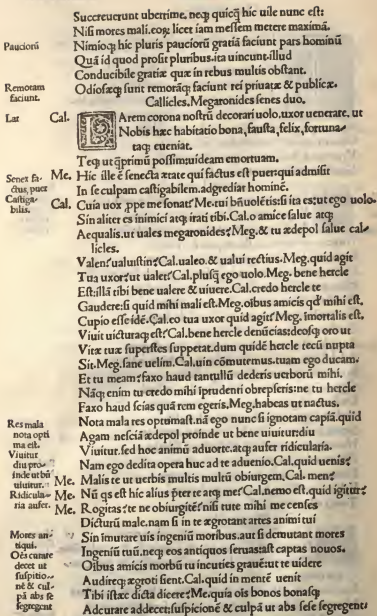 Succreuerunt uberrime. neq; quicq̃ hic uile nunc est:
Nisi mores mali. eoꝝ licet iam messem metere maximã.
Pauciorũ
Nimioq; hic pluris pauciorũ gratiã faciunt pars hominũ
Quã id quod prosit pluribus. ita uincunt. illud
Conducibile gratiæ quæ in rebus multis obstant.
Remotam faciunt.
Odiosæq; sunt remorãq; faciunt rei priuatæ & publicæ.
Callicles. Megaronides senes duo.
Lar
Cal. Larem corona nostrũ decorari uolo. uxor uenerare. ut
Nobis hæc habitatio bona, fausta, felix, fortuna/
taq; eueniat.
Teq; ut q̃primũ possim; uideam emortuam.
Senex factus, puer
Me. Hic ille ẽ senecta ætate qui factus est puer: qui admisit
Castigabilis.
In se culpam castigabilem. adgrediar hominẽ.
Cal. Cuia uox ꝓpe me sonat? Me. tui bñuolẽtis: si ita es: ut ego uolo
Sin aliter es inimici atq; irati tibi. Cal. o amice salue atq;
Aequalis. ut uales megaronides? Meg. & tu ædepol salue cal/
licles.
Valen? ualuistin? Cal. ualeo. & ualui rectius. Meg. quid agit
Tua uxor? ut ualet? Cal. plusq̃ ego uolo. Meg. bene hercle
Est: illã tibi bene ualere & uiuere. Cal. credo hercle te
Gaudere: si quid mihi mali est. Meg. oibus amicis qd' mihi est.
Cupio esse idẽ. Cal. eo tua uxor quid agit? Meg. ĩmortalis est.
Viuit uicturaq; est? Cal. bene hercle denũcias: deosq; oro ut
Vitæ tuæ superstes suppetat. dum quidẽ hercle tecũ nupta
Sit. Meg. sane uelim. Cal. uin cõmutemus. tuam ego ducam.
Et tu meam? faxo haud tantullũ dederis uerborũ mihi.
Nãq; enim tu credo mihi ĩprudenti obrepseris: ne tu hercle
Faxo haud scias quã rem egeris. Meg. habeas ut nactus.
Res mala nota optima est.
Nota mala res optuma st. nã ego nunc si ignotam capiã. quid
Viuitur diu proinde ut bñ uiuitur.
Agam nesciã ædepol proinde ut bene uiuitur: diu
Viuitur. sed hoc animũ aduorte. atq; aufer ridicularia.
Nam ego dedita opera huc ad te aduenio. Cal. quid uenis?
Ridicularia aufer.
Me. Malis te ut uerbis multis multũ obiurgem. Cal. men?
Me. Nũ qs est hic alius p̃ter te atq; me? Cal. nemo est. quid igitur?
Me. Rogitas? te ne obiurgitẽ? nisi tute mihi me censes
Dicturũ male. nam si in te ægrotant artes animi tui
Mores antiqui.
Sin imutare uis ingeniũ moribus. aut si demutant mores
Ingeniũ tuũ. neq; eos antiquos seruas: ast captas nouos.
Oẽs curare decet ut suspitionẽ & culpã abs se segregent
Oibus amicis morbũ tu incuties grauẽ: ut te uidere
Audireq; ægroti sient. Cal. quid in mentẽ uenit
Tibi istæc dicta dicere? Me. quia oĩs bonos bonasq;
Adcurare addecet: suspicionẽ & culpã ut abs sese segregent: